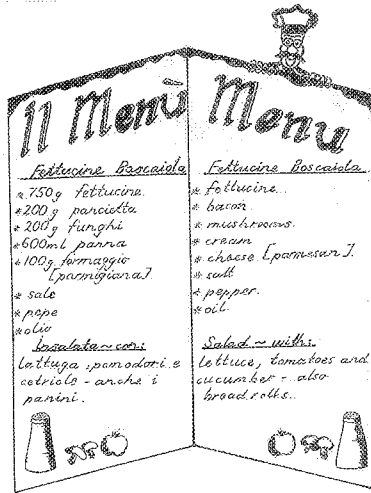 Il Menù
Fettucine Boscaiola
* 750g fettucine
* 200g pancietta
* 200g funghi
* 600ml panna
* 100g formaggio
[parmigiana]
* sale
* pepe
* olio
Insalata ~ con:
lattuga, pomodori e
cetriolo - anche i
panini.
Menu
Fettucine Boscaiola
* fettucine.
* bacon.
* mushrooms.
* cream
* cheese [parmesan].
* salt
* pepper.
* oil.
Salad ~ with:
lettuce, tomatoes and
cucumber - also
bread rolls.